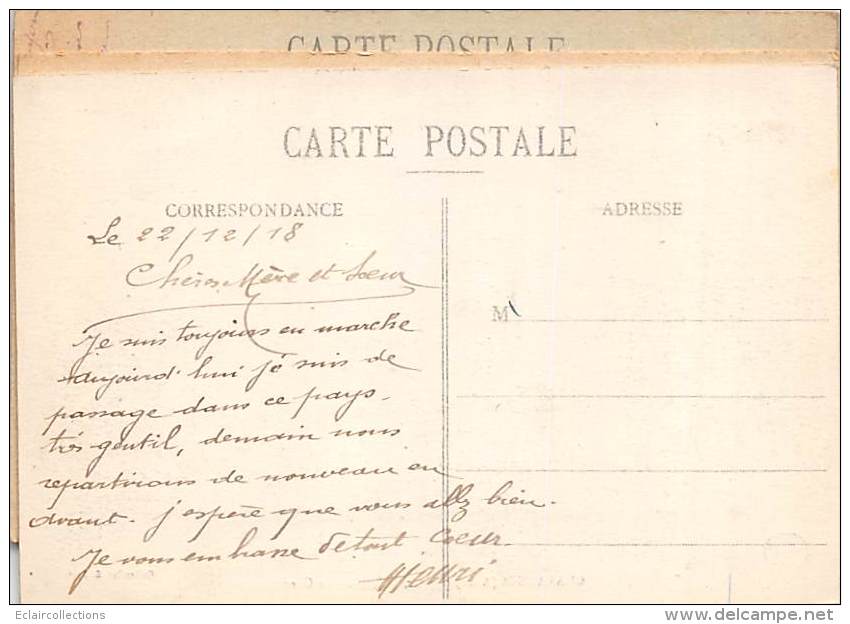 CARTE POSTALE
CARTE POSTALE
CORRESPONDANCE
ADRESSE
Le 22/12/18
Chères Mère et Sœur
M
Je suis toujours en marche
aujourd'hui je suis de
passage dans ce pays
très gentil, demain nous
repartirons de nouveau en
avant. j'espère que vous allz bien.
Je vous embrasse de tout Coeur
Henri
Eclaircollections
www.delcampe.net